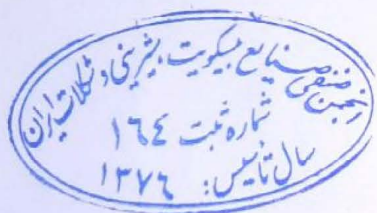 انجمن صنفی صنایع بیسکویت، شیرینی و شکلات ایران
شماره ثبت ١٦٤
سال تأسیس: ١٣٧٦